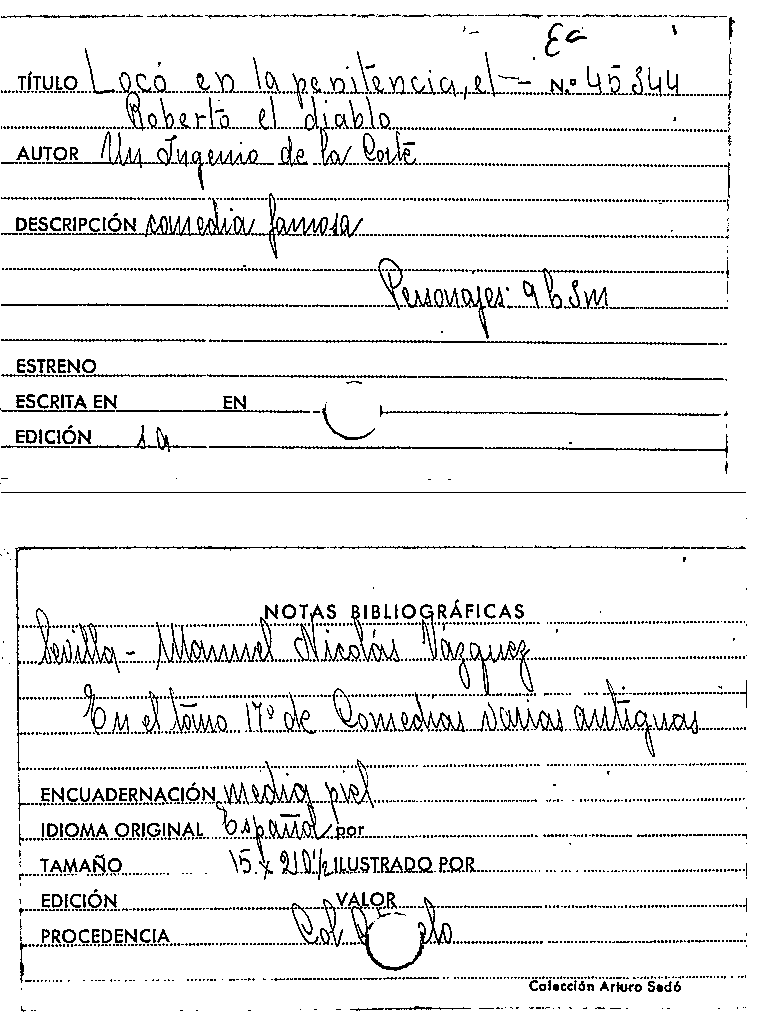 Ea
TÍTULO Loco en la penitencia, el – N.º 45344
Roberto el diablo
AUTOR Un Ingenio de la Corte
DESCRIPCIÓN comedia famosa
Personajes: 9h 3m
ESTRENO
ESCRITA EN EN
EDICIÓN s.a
NOTAS BIBLIOGRÁFICAS
Sevilla - Manuel Nicolás Vázquez
En el tomo 17º de Comedias varias antiguas
ENCUADERNACIÓN media piel
IDIOMA ORIGINAL Español por
TAMAÑO 15 x 21 ILUSTRADO POR
EDICIÓN VALOR
PROCEDENCIA Col
Colección Arturo Sedó